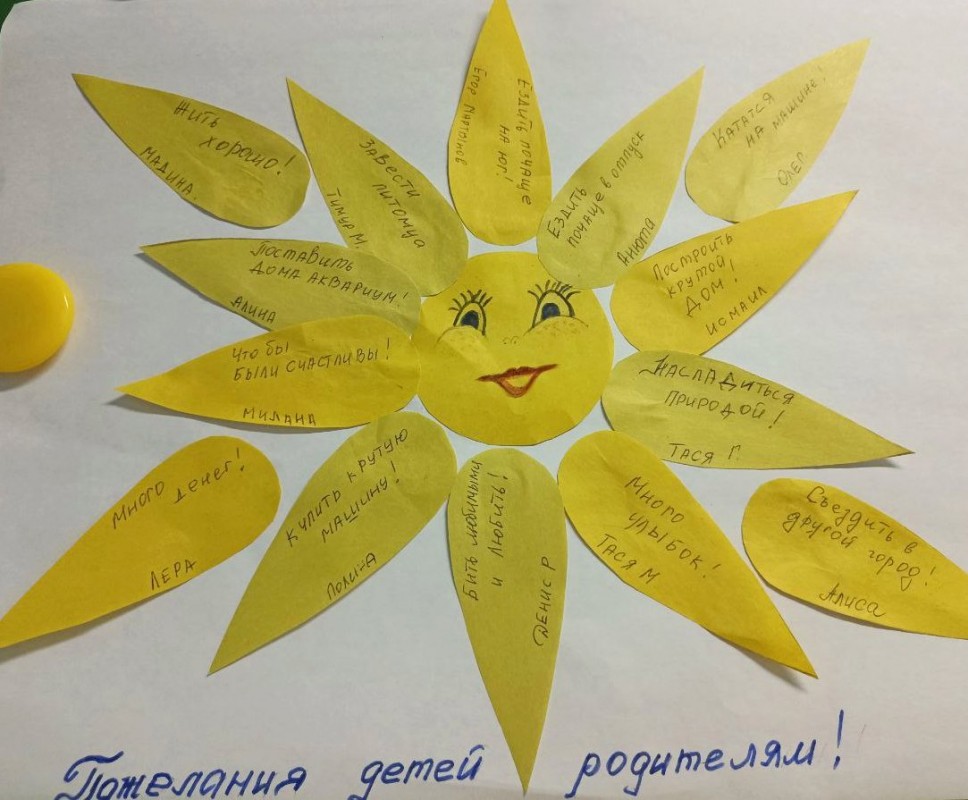 Жить
хорошо!
Мадина.
Завести
питомца
Тимур М.
Ездить почаще
на юг!
Егор
Ездить
почаще в отпуск
Анюта
Кататся
на машине!
Олег
Поставить
дома аквариум!
Алина
Построить
крутой
дом!
Исмаил
Что бы
были счастливы!
Милана
Насладиться
природой!
Тася Г.
Много денег!
Лера
Купить крутую
машину!
Полина
Бить любимыми
и любить!
Денис Р
Много
улыбок!
Тася М
Съездить в
другой город!
Алиса
Пожелания детей родителям!